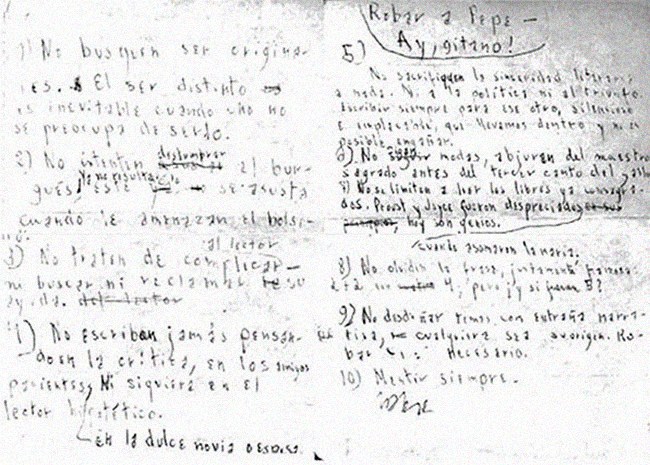 1) No busquen ser origina-
les. El ser distinto
es inevitable cuando uno no
se preocupa de serlo.
2) No intenten deslumbrar al bur-
gués. Ya no resulta. Este se asusta
cuando le amenazan el bolsi-
llo.
3) No traten de complicar al lector
ni buscar ni reclamar su
ayuda. del lector
4) No escriban jamás pensan-
do en la crítica, en los amigos
parientes, Ni siquiera en el
lector hipotético.
en la dulce novia o esposa.
Robar a Pepe —
Ay, gitano!
5)
No sacrifiquen la sinceridad literaria
a nada. Ni a la política ni al triunfo.
Escribir siempre para ese otro, silencioso
e implacable, que llevamos dentro y no es
posible engañar.
6) No sigan modas, abjuren del maestro
sagrado antes del tercer canto del gallo
7) No se limiten a leer los libros ya consagra-
dos. Proust y Joyce fueron despreciados
hoy son genios.
cuando asomaron la nariz,
8) No olviden la frase, justamente famosa
2 + 2 son 4, pero ¿y si fueran 5?
9) No desdeñar temas con extraña narra-
tiva, cualquiera sea su origen. Ro-
bar si es necesario.
10) Mentir siempre.